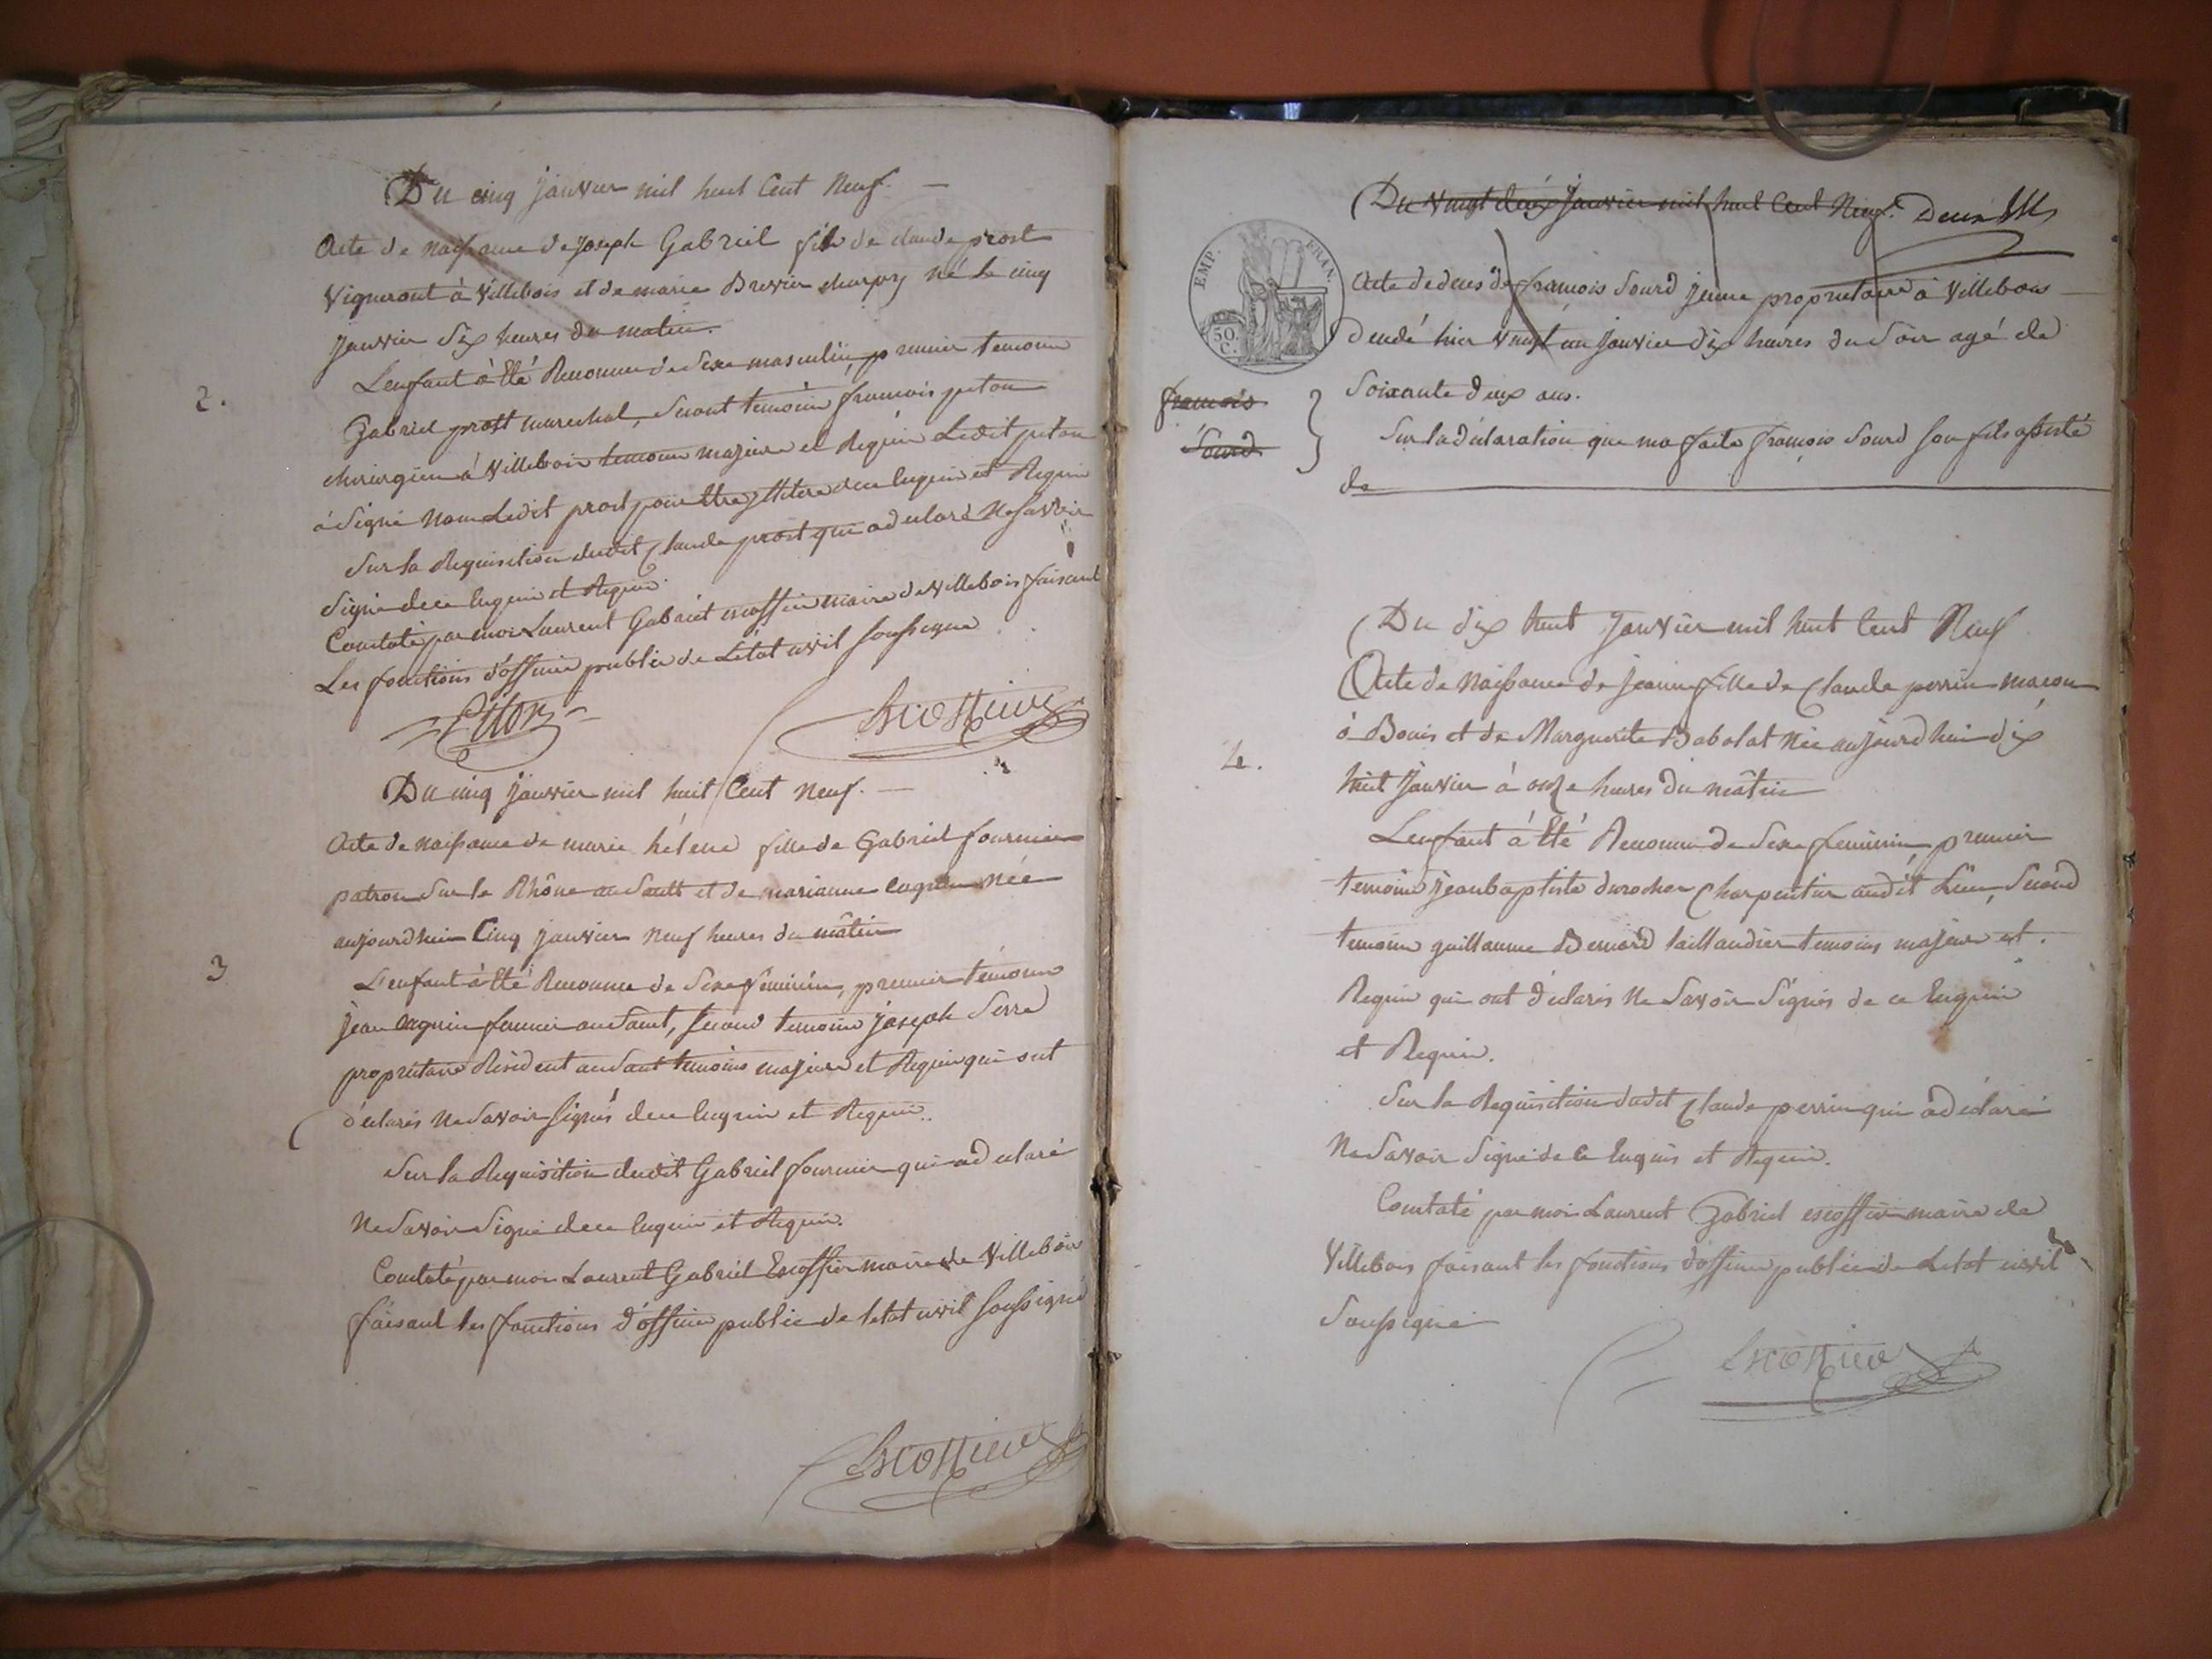 Du cinq janvier mil huit Cent Neuf.
Acte de naissance de joseph Gabriel fils de claude prost
vigneront à Villebois et de marie né le cinq
janvier dix heures du matin.
2.
L'enfant à Eté Reconnu de Sexe masculin, premier temoin
Gabriel prost marechal, second temoin francois piton
chirurgien à Villebois temoins majeurs et Requis Ledit piton
à Signé non Ledit prost pour être illitere de ce Enquis et Requis
Sur la Requisition dudit Claude prost qui a declaré Ne Savoir
Signé de ce Enquis et Requis.
Constaté par moi Laurent Gabriel escoffier maire de Villebois faisant
Les fonctions d'officier public de L'état civil soussigné
Piton
Escoffier
Du cinq janvier mil huit Cent Neuf.
Acte de naissance de marie hélene fille de Gabriel fournier
patron Sur le Rhône au Sault et de marianne née
aujourdhui Cinq janvier Neuf heures du mâtin
3
L'enfant à Eté Reconnu de Sexe féminin, premier témoin
jean au Sault, second temoin joseph Serra
propriétaire Résident au Sault temoins majeurs et Requis qui ont
déclarés Ne Savoir Signés de ce Enquis et Requis.
Sur la Requisition dudit Gabriel fournier qui a declaré
Ne Savoir Signé de ce Enquis et Requis.
Constaté par moi Laurent Gabriel Escoffier maire de Villebois
faisant les fonctions d'officier public de letat civil soussigné
Escoffier
Du Vingt deux Janvier mil huit Cent Neuf.
EMP. FRAN.
50. C.
Acte de deces de françois Sourd jeune proprietaire à Villebois
decedé hier vingt un janvier dix heures du Soir agé de
Soixante deux ans.
françois
Sourd
Sur la déclaration que ma faite françois Sourd son fils assisté
de
Du dix huit Janvier mil huit Cent Neuf
Acte de Naissance de jeanne fille de Claude perrin macon
à Bouis et de Marguerite Babolat Née aujourdhui dix
4.
huit Janvier à onze heures du mâtin
L'enfant à Eté Reconnu de Sexe feminin, premier
temoin jean baptiste durochat Charpentier audit Lieu, Second
temoin guillaume Bernard taillandier temoins majeurs et
Requis qui ont déclarés Ne Savoir Signés de ce Enquis
et Requis.
Sur la Requisition dudit Claude perrin qui a déclaré
Ne Savoir Signé de ce Enquis et Requis.
Constaté par moi Laurent Gabriel escoffier maire de
Villebois faisant les fonctions d'officier public de Letat civil
Soussigné
Escoffier